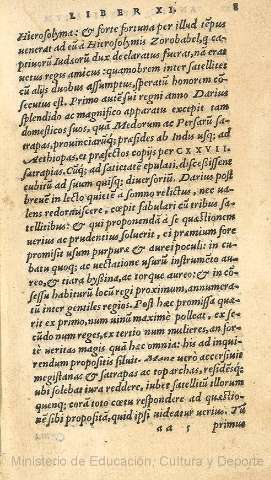 LIBER XI. 8
Hierosolyma: & forte fortuna per illud tẽpus
uenerat ad eũ à Hierosolymis Zorobabel, q ca
ptiuorũ Iudæorũ dux declaratus fuerat, nã erat
uetus regis amicus: quamobrem inter satellites
cũ alijs duobus assumptus, speratũ honorem cõ
secutus est. Primo autẽ sui regni anno Darius
splendido ac magnifico apparatu excepit tam
domesticos suos, quà Medorum ac Persarũ sa-
trapas, prouinciarũq; præsides ab Indis usq; ad
Aethiopas, et præfectos copijs per CXXVII.
satrapias. Cũq; ad satietatẽ epulati, discessissent
cubitũ ad suum quisq; diuersoriũ. Darius post
breuẽ in lecto quietẽ à somno relictus, nec ua-
lens redormiscere, cœpit fabulari cũ tribus sa-
tellitibus: & qui proponendã à se quæstionem
uerius ac prudentius soluerit, ei præmium fore
promisit usum purpuræ & aurei poculi: in cu-
batu quoq; ac uectatione usurũ instrumẽto au-
reo, & tiara byssina, ac torque aureo: & in cõ-
sessu habiturũ locũ regi proximum, annumera-
tũ inter gentiles regios. Post hæc promissa quæ-
rit ex primo, num uinũ maximè polleat, ex se-
cũdo num reges, ex tertio num mulieres, an for-
tè ueritas magis quà hæc omnia: his ad inqui-
rendum propositis siluit. Mane uerò accersiuit
megistanas & satrapas ac toparchas, residẽsq;
ubi solebat iura reddere, iubet satellitũ illorum
quenq; corã toto cœtu respondere ad quæstio-
nẽ sibi propositã, quid ipsi uideatur uerius. Tũ
aa 5 primus
Ministerio de Educación, Cultura y Deporte